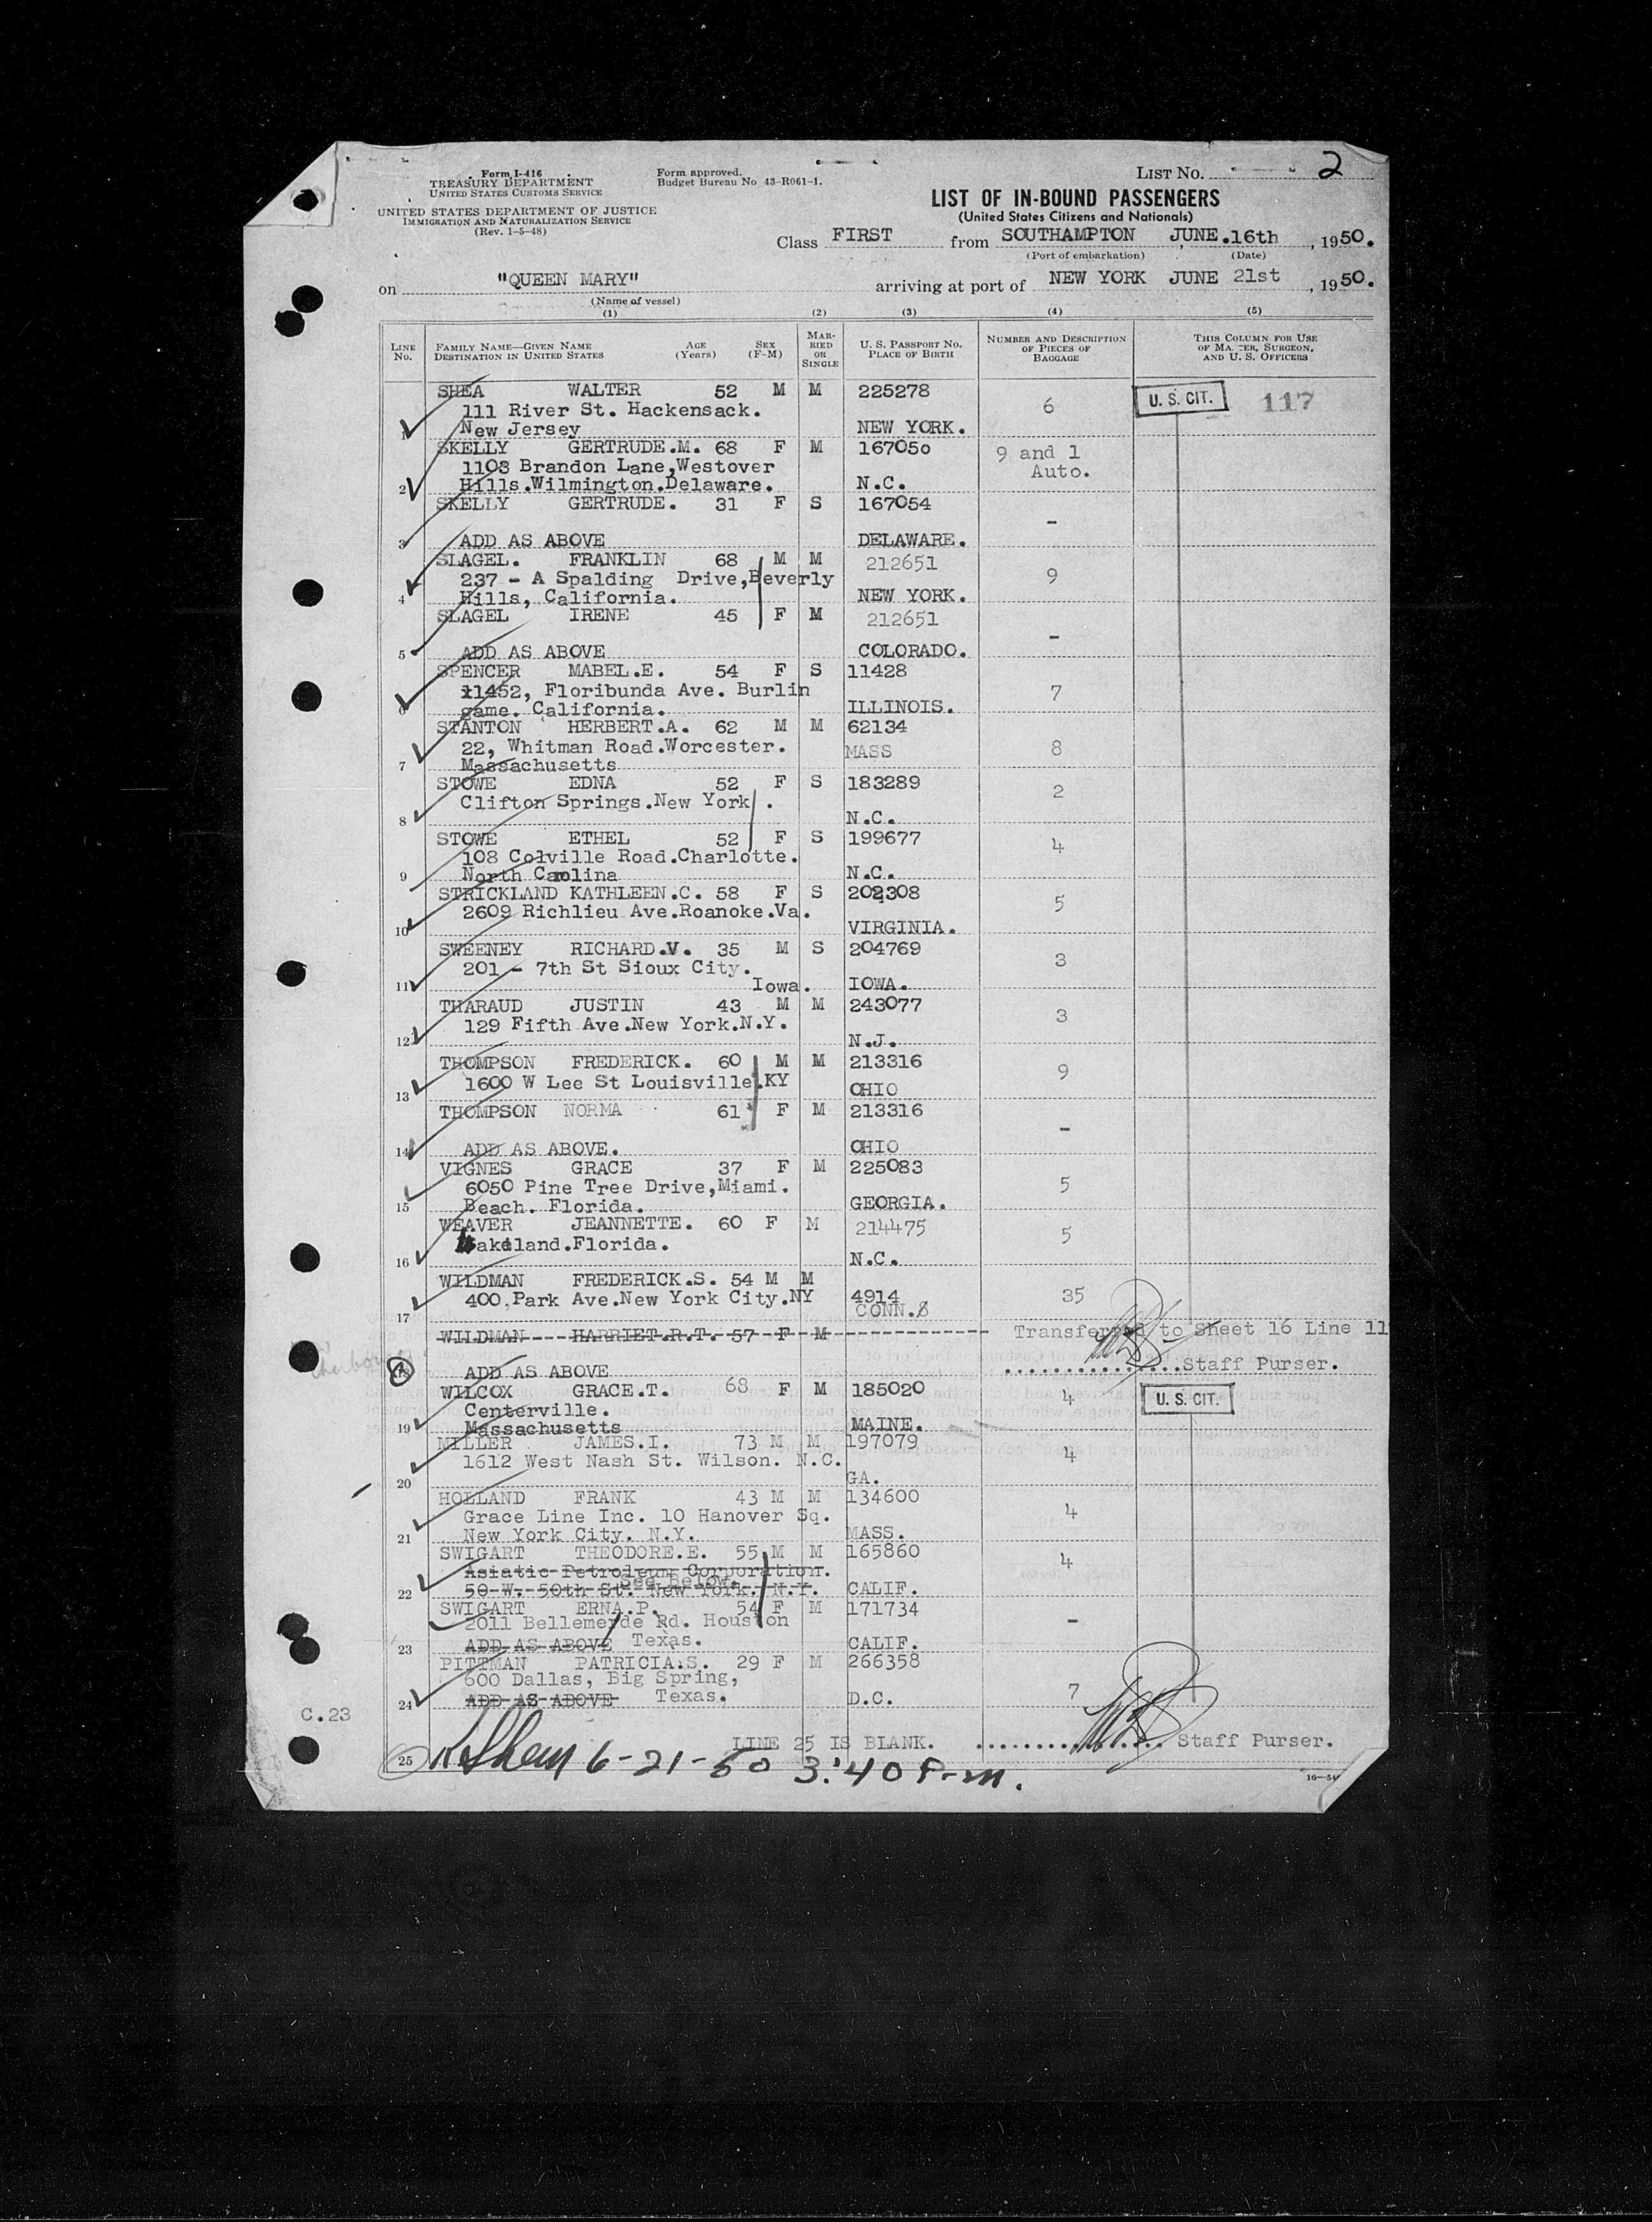 Form I-416
TREASURY DEPARTMENT
UNITED STATES CUSTOMS SERVICE
UNITED STATES DEPARTMENT OF JUSTICE
IMMIGRATION AND NATURALIZATION SERVICE
(Rev. 1-5-48)
Form approved.
Budget Bureau No 43-R061-1.
LIST NO. 2
LIST OF IN-BOUND PASSENGERS
(United States Citizens and Nationals)
Class FIRST from SOUTHAMPTON JUNE.16th, 1950.
(Port of embarkation) (Date)
on "QUEEN MARY" arriving at port of NEW YORK JUNE 21st, 1950.
(Name of vessel)
(1) (2) (3) (4) (5)
LINE NO. FAMILY NAME—GIVEN NAME DESTINATION IN UNITED STATES AGE (Years) SEX (F-M) MARRIED OR SINGLE U. S. PASSPORT NO. PLACE OF BIRTH NUMBER AND DESCRIPTION OF PIECES OF BAGGAGE THIS COLUMN FOR USE OF MA TER, SURGEON, AND U. S. OFFICERS
SHEA WALTER 52 M M 225278 6 U. S. CIT. 117
111 River St. Hackensack.
1 New Jersey NEW YORK.
SKELLY GERTRUDE.M. 68 F M 167050 9 and 1
1103 Brandon Lane,Westover Auto.
2 Hills.Wilmington.Delaware. N.C.
SKELLY GERTRUDE. 31 F S 167054 -
3 ADD AS ABOVE DELAWARE.
SLAGEL. FRANKLIN 68 M M 212651
237 - A Spalding Drive,Beverly 9
4 Hills, California. NEW YORK.
SLAGEL IRENE 45 F M 212651 -
5 ADD AS ABOVE COLORADO.
SPENCER MABEL.E. 54 F S 11428
11452, Floribunda Ave. Burlin 7
6 game. California. ILLINOIS.
STANTON HERBERT.A. 62 M M 62134
22, Whitman Road.Worcester. MASS 8
7 Massachusetts
STOWE EDNA 52 F S 183289 2
Clifton Springs.New York.
8 N.C.
STOWE ETHEL 52 F S 199677 4
108 Colville Road.Charlotte.
9 North Carolina N.C.
STRICKLAND KATHLEEN.C. 58 F S 202308 5
2609 Richlieu Ave.Roanoke.Va.
10 VIRGINIA.
SWEENEY RICHARD.V. 35 M S 204769 3
201 - 7th St Sioux City.
11 Iowa. IOWA.
THARAUD JUSTIN 43 M M 243077 3
129 Fifth Ave.New York.N.Y.
12 N.J.
THOMPSON FREDERICK. 60 M M 213316 9
1600 W Lee St Louisville.KY
13 OHIO
THOMPSON NORMA 61 F M 213316 -
14 ADD AS ABOVE. OHIO
VIGNES GRACE 37 F M 225083 5
6050 Pine Tree Drive,Miami.
15 Beach. Florida. GEORGIA.
WEAVER JEANNETTE. 60 F M 214475 5
Lakeland.Florida.
16 N.C.
WILDMAN FREDERICK.S. 54 M M 35
400.Park Ave.New York City.NY 4914
17 CONN.
WILDMAN HARRIET.R.T. 57 F M Transferred to Sheet 16 Line 11
Staff Purser.
ADD AS ABOVE
WILCOX GRACE.T. 68 F M 185020 4 U. S. CIT.
Centerville.
19 Massachusetts MAINE.
MILLER JAMES.I. 73 M M 197079 4
1612 West Nash St. Wilson. N.C.
20 GA.
HOLLAND FRANK 43 M M 134600 4
Grace Line Inc. 10 Hanover Sq.
21 New York City. N.Y. MASS.
SWIGART THEODORE.E. 55 M M 165860 4
Asiatic Petroleum Corporation.
See Below.
22 50 W. 50th St. New York. N.Y. CALIF.
SWIGART ERNA.P. 54 F M 171734 -
2011 Bellemeade Rd. Houston
23 ADD AS ABOVE Texas. CALIF.
PITTMAN PATRICIA.S. 29 F M 266358 7
600 Dallas, Big Spring,
24 ADD AS ABOVE Texas. D.C.
C.23
LINE 25 IS BLANK. Staff Purser.
25 6-21-50 3:40 P.m.